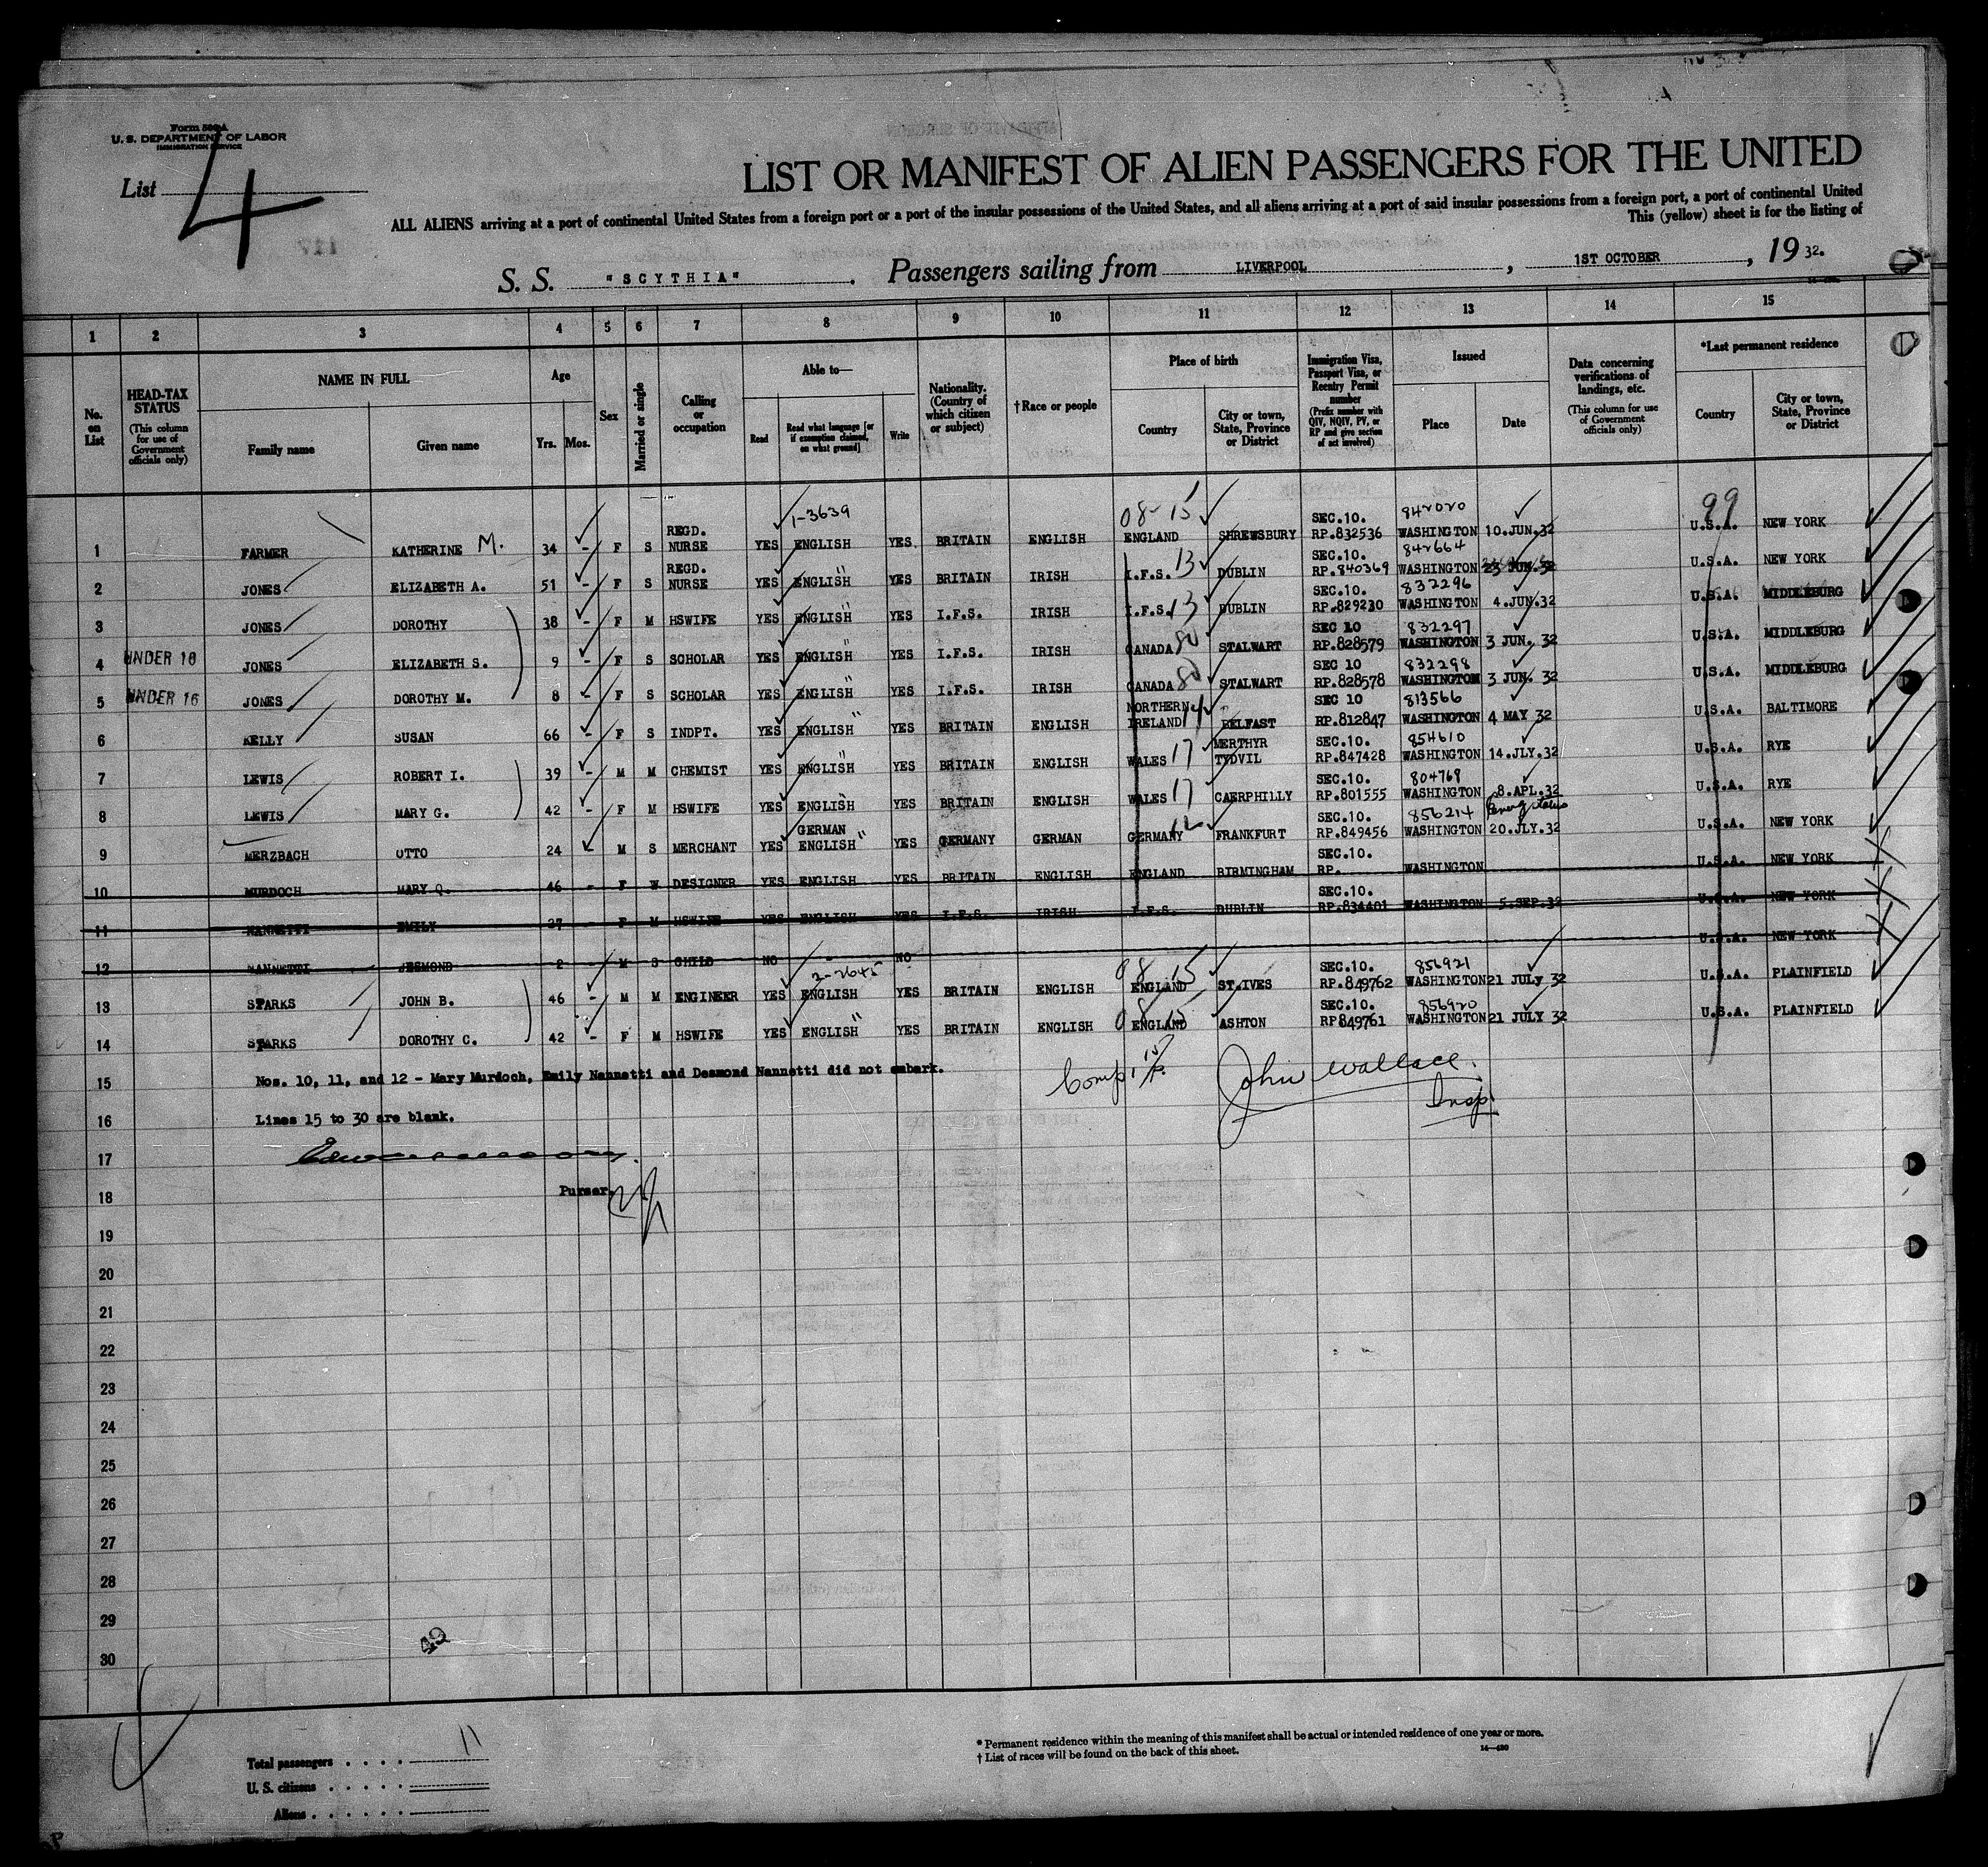 Form 500 A
U. S. DEPARTMENT OF LABOR
IMMIGRATION SERVICE
List 4
LIST OR MANIFEST OF ALIEN PASSENGERS FOR THE UNITED
ALL ALIENS arriving at a port of continental United States from a foreign port or a port of the insular possessions of the United States, and all aliens arriving at a port of said insular possessions from a foreign port, a port of continental United
This (yellow) sheet is for the listing of
S. S. "SCYTHIA". Passengers sailing from LIVERPOOL, 1ST OCTOBER, 19 32.
1 2 3 4 5 6 7 8 9 10 11 12 13 14 15
No. on List
HEAD-TAX STATUS (This column for use of Government officials only)
NAME IN FULL
Family name Given name
Age
Yrs. Mos.
Sex
Married or single
Calling or occupation
Able to—
Read
Read what language [or if exemption claimed, on what ground]
Write
Nationality. (Country of which citizen or subject)
†Race or people
Place of birth
Country
City or town, State, Province or District
Immigration Visa, Passport Visa, or Reentry Permit number (Prefix number with QIV, NQIV, PV, or RP and give section of act involved)
Issued
Place Date
Data concerning verifications of landings, etc. (This column for use of Government officials only)
*Last permanent residence
Country
City or town, State, Province or District
1-3639 08-15 842020 99
1 FARMER KATHERINE M. 34 - F S REGD. NURSE YES ENGLISH YES BRITAIN ENGLISH ENGLAND SHREWSBURY SEC.10. RP.832536 WASHINGTON 10.JUN.32 U.S.A. NEW YORK
2 JONES ELIZABETH A. 51 - F S REGD. NURSE YES ENGLISH " YES BRITAIN IRISH I.F.S. 13 DUBLIN SEC.10. RP.840369 842664 WASHINGTON 23 JUN.32 U.S.A. NEW YORK
3 JONES DOROTHY 38 - F M HSWIFE YES ENGLISH " YES I.F.S. IRISH I.F.S. 13 DUBLIN SEC.10. RP.829230 832296 WASHINGTON 4.JUN.32 U.S.A. MIDDLEBURG
4 UNDER 16 JONES ELIZABETH S. 9 - F S SCHOLAR YES ENGLISH " YES I.F.S. IRISH CANADA 80 STALWART SEC 10 RP.828579 832297 WASHINGTON 3 JUN. 32 U.S.A. MIDDLEBURG
5 UNDER 16 JONES DOROTHY M. 8 - F S SCHOLAR YES ENGLISH " YES I.F.S. IRISH CANADA 80 STALWART SEC 10 RP.828578 832298 WASHINGTON 3 JUN. 32 U.S.A. MIDDLEBURG
6 KELLY SUSAN 66 - F S INDPT. YES ENGLISH " YES BRITAIN ENGLISH NORTHERN IRELAND 14 BELFAST SEC 10 RP.812847 813566 WASHINGTON 4 MAY 32 U.S.A. BALTIMORE
7 LEWIS ROBERT I. 39 - M M CHEMIST YES ENGLISH " YES BRITAIN ENGLISH WALES 17 MERTHYR TYDVIL SEC.10. RP.847428 854610 WASHINGTON 14.JLY.32 U.S.A. RYE
8 LEWIS MARY G. 42 - F M HSWIFE YES ENGLISH " YES BRITAIN ENGLISH WALES 17 CAERPHILLY SEC.10. RP.801555 804768 WASHINGTON 8.APL.32 U.S.A. RYE
9 MERZBACH OTTO 24 - M S MERCHANT YES GERMAN ENGLISH " YES GERMANY GERMAN GERMANY 12 FRANKFURT SEC.10. RP.849456 856214 WASHINGTON 20.JLY.32 U.S.A. NEW YORK
10 MURDOCH MARY Q. 46 - F W DESIGNER YES ENGLISH YES BRITAIN ENGLISH ENGLAND BIRMINGHAM SEC.10. RP. WASHINGTON U.S.A. NEW YORK
11 NANNETTI EMILY 27 - F M HSWIFE YES ENGLISH YES I.F.S. IRISH I.F.S. DUBLIN SEC.10. RP.834401 WASHINGTON 5.SEP.32 U.S.A. NEW YORK
12 NANNETTI DESMOND 2 - M S CHILD NO - NO U.S.A. NEW YORK
2-2645 08 15
13 SPARKS JOHN B. 46 - M M ENGINEER YES ENGLISH YES BRITAIN ENGLISH ENGLAND ST.IVES SEC.10. RP.849762 856921 WASHINGTON 21 JULY 32 U.S.A. PLAINFIELD
14 SPARKS DOROTHY C. 42 - F M HSWIFE YES ENGLISH " YES BRITAIN ENGLISH 08 15 ENGLAND ASHTON SEC.10. RP849761 856920 WASHINGTON 21 JULY 32 U.S.A. PLAINFIELD
15 Nos. 10, 11, and 12 - Mary Murdoch, Emily Nannetti and Desmond Nannetti did not embark.
John Wallace.
Insp
16 Lines 15 to 30 are blank.
17
18 Purser.
19
20
21
22
23
24
25
26
27
28
29
30
49
Total passengers . . . . 11
U. S. citizens . . . . .
Aliens . . . . . .
* Permanent residence within the meaning of this manifest shall be actual or intended residence of one year or more.
† List of races will be found on the back of this sheet. 14—430